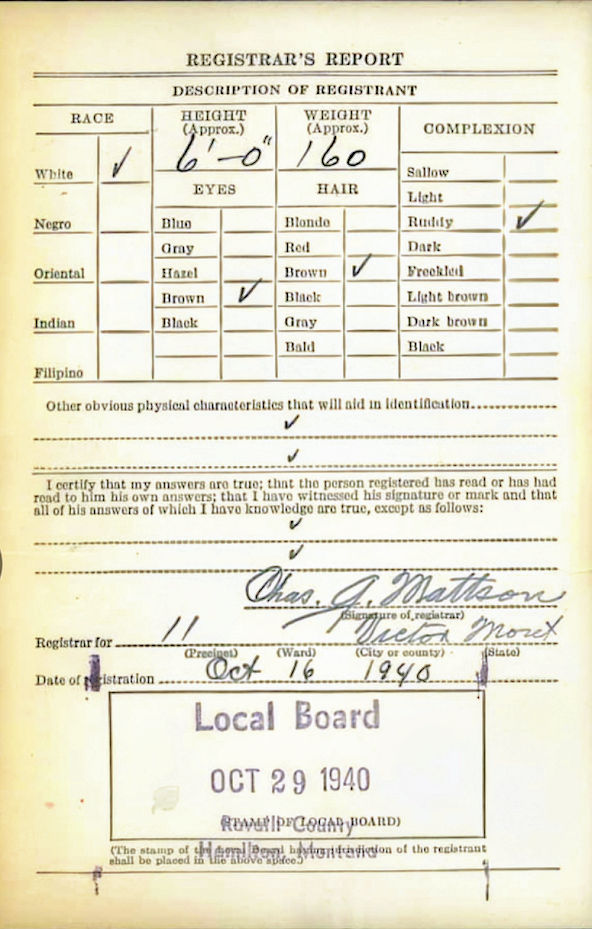 REGISTRAR'S REPORT
DESCRIPTION OF REGISTRANT
RACE
HEIGHT (Approx.)
WEIGHT (Approx.)
COMPLEXION
6'-0"
160
White ✓
Sallow
EYES
HAIR
Light
Negro
Blue
Blonde
Ruddy ✓
Gray
Red
Dark
Oriental
Hazel
Brown ✓
Freckled
Brown ✓
Black
Light brown
Indian
Black
Gray
Dark brown
Bald
Black
Filipino
Other obvious physical characteristics that will aid in identification
✓
✓
I certify that my answers are true; that the person registered has read or has had
read to him his own answers; that I have witnessed his signature or mark and that
all of his answers of which I have knowledge are true, except as follows:
✓
✓
Chas. G. Mattson
(Signature of registrar)
Registrar for 11 Victor Mont
(Precinct) (Ward) (City or county) (State)
Date of registration Oct 16 1940
Local Board
OCT 29 1940
(STAMP OF LOCAL BOARD)
Ravalli County
Hamilton, Montana
(The stamp of the Local Board having jurisdiction of the registrant
shall be placed in the above space.)